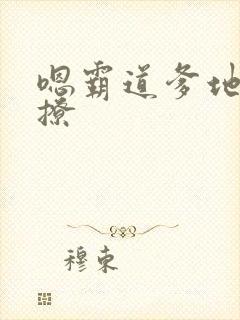 嗯霸道爹地
撩
穆束